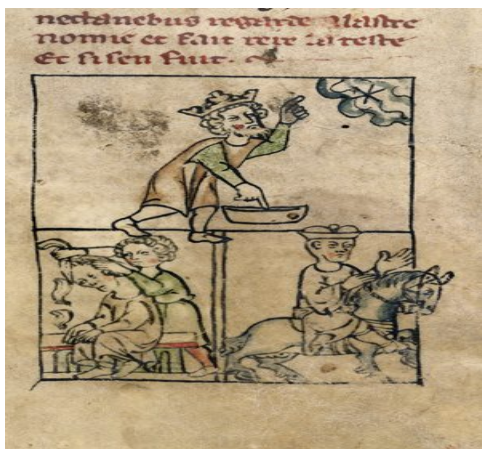 nectanebus regarde a lastre
nomie et fait rere sa teste
Et si sen fuit.